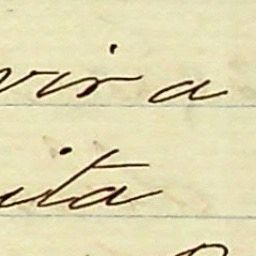 vir a
ita